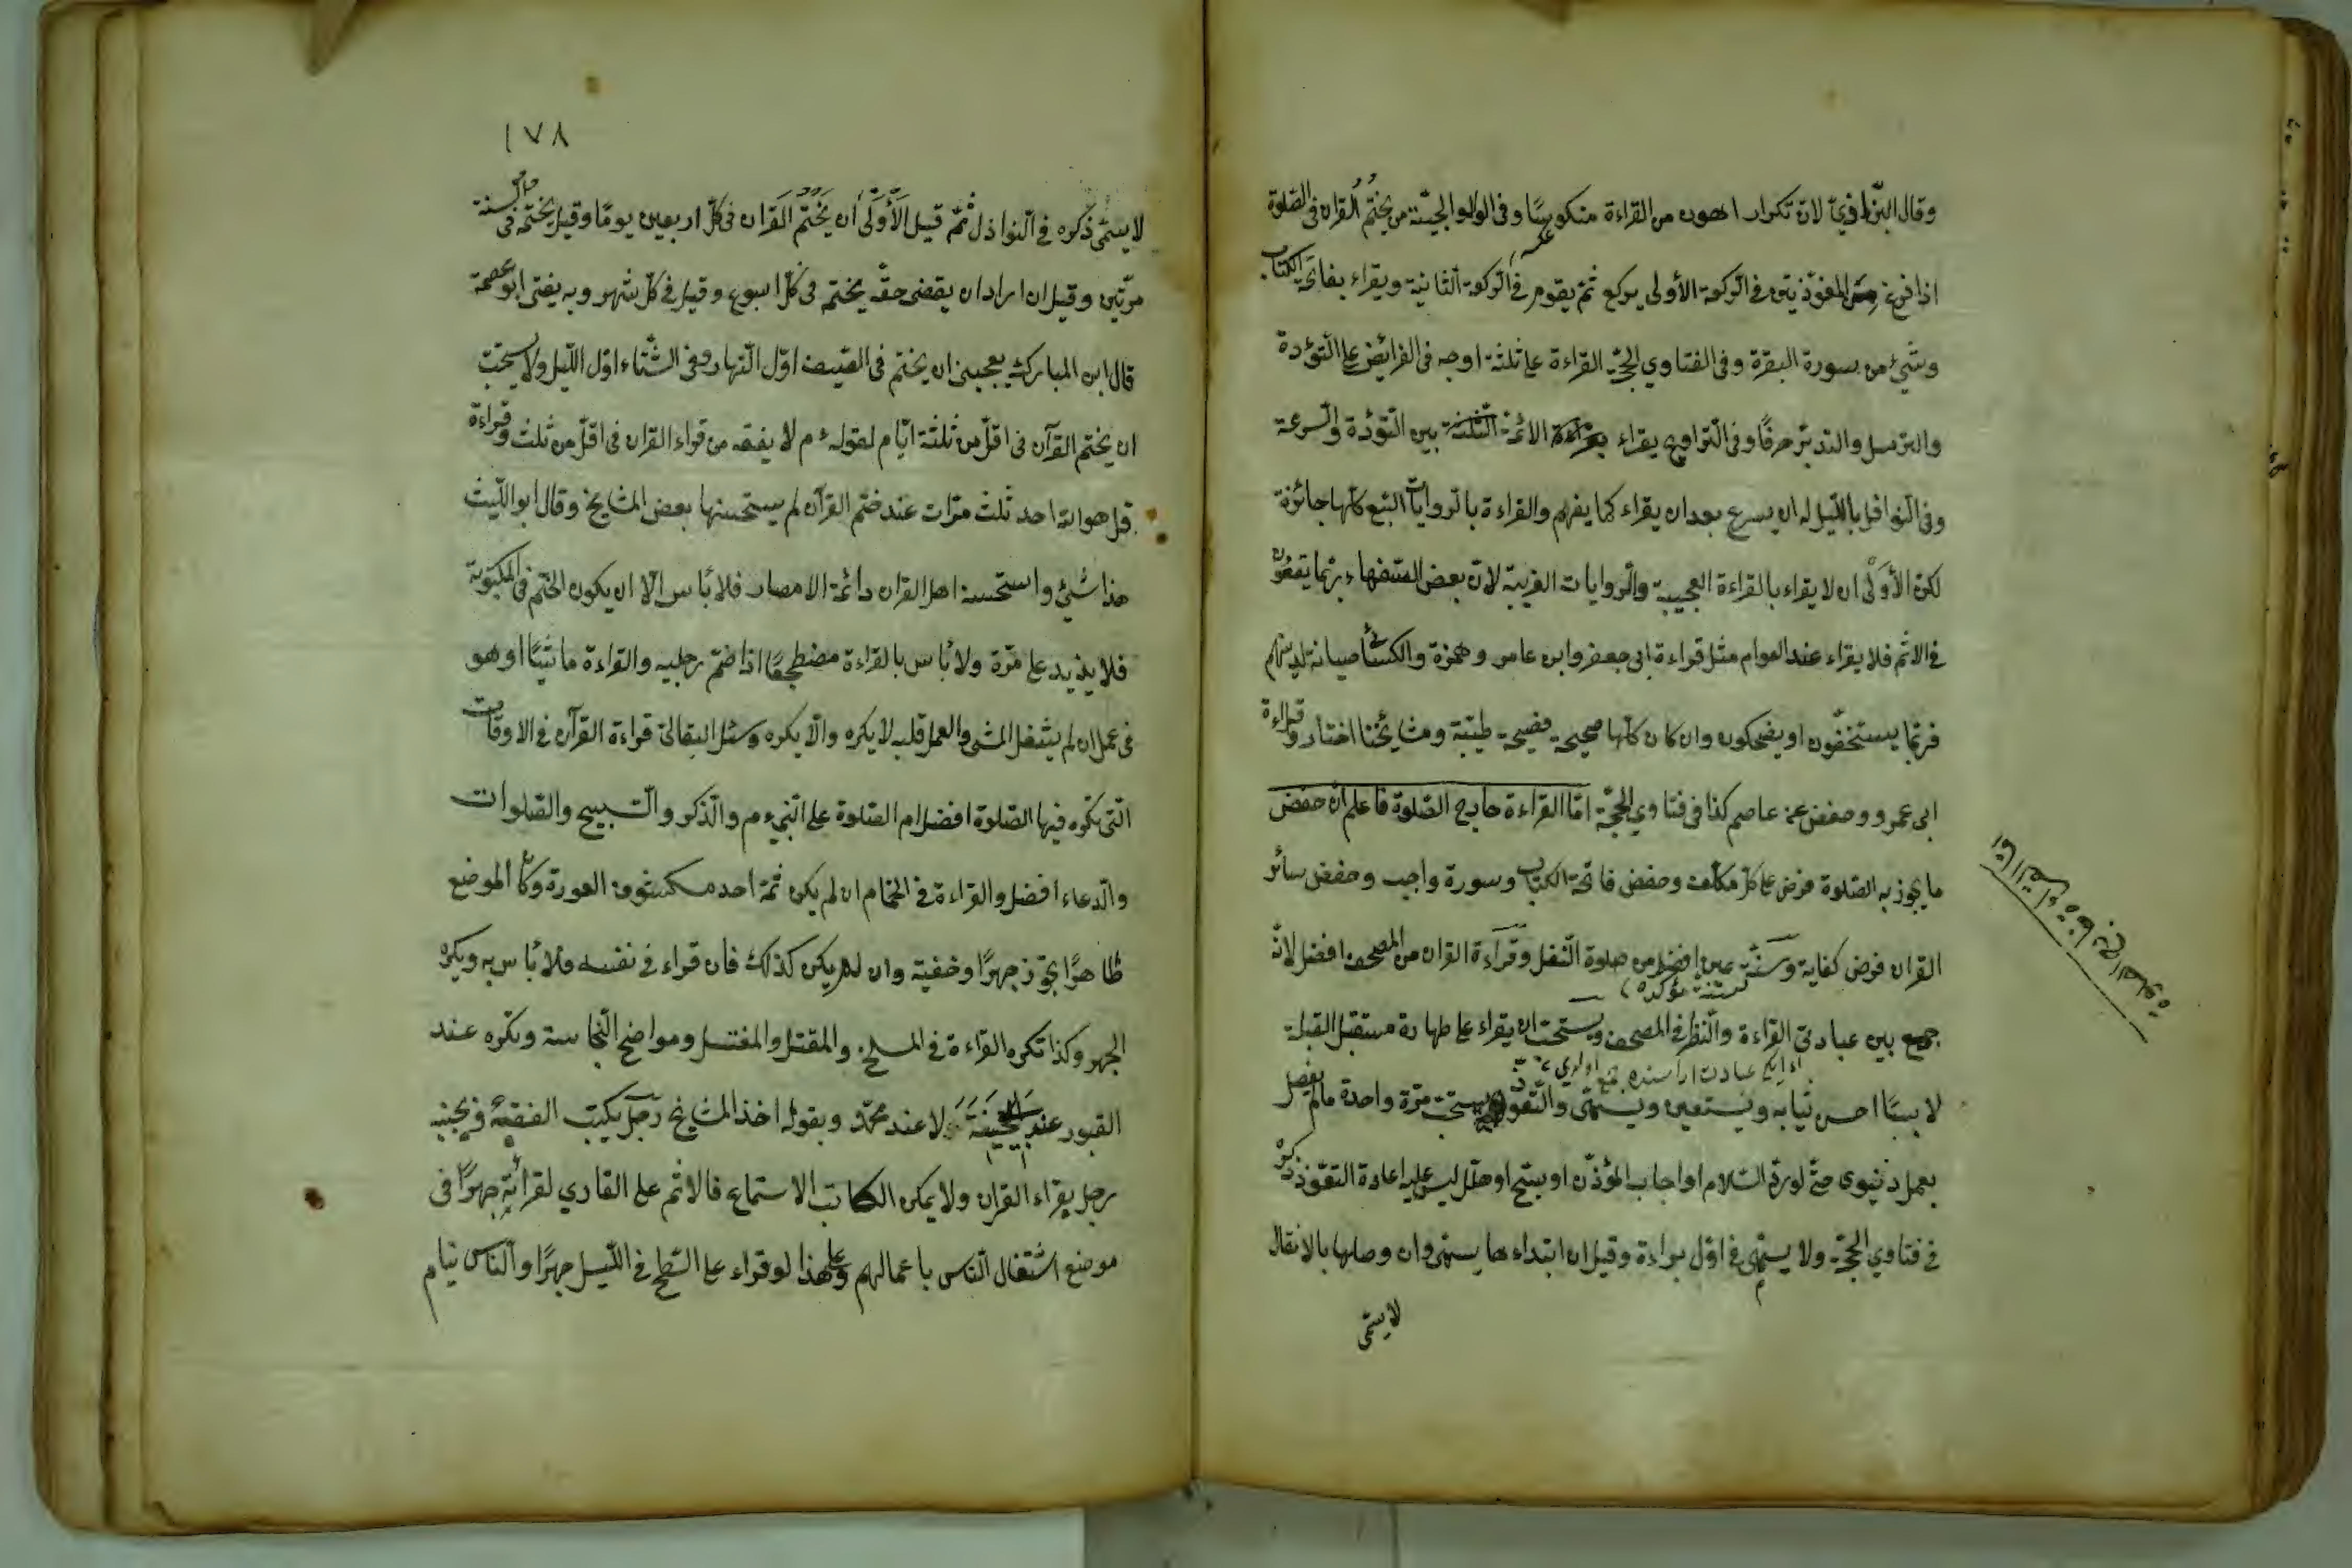 وقال البزازي لان تكرار اهون من القراءة منكوسًا وفي الولوالجية من يختم القران في الصلوة
اذا فرغ من المعوّذتين في الركعة الأولى يركع ثمّ يقوم في الركعة الثانية ويقراء بفاتحة الكتاب
وشيء من سورة البقرة وفي الفتاوي الحجّة القراءة على ثلثة اوجه في الفرائض على التؤدة
والترسل والتدبّر حرفًا وفي التراويح يقراء بقراءة الائمة الثلثة بين التؤدة والسرعة
وفي النوافل بالليل له ان يسرع بعد ان يقراء كما يفهم والقراءة بالروايات السبع كلها جائزة
لكن الأولى ان لا يقراء بالقراءة العجيبة والروايات الغريبة لان بعض السفهاء ربما يقعون
في الاثم فلا يقراء عند العوام مثل قراءة ابى جعفر وابن عامر وحمزة والكسائي صيانة لدينهم
فربّما يستخفّون او يضحكون وان كان كلّها صحيحة فصيحة طيّبة ومشايخنا اختاروا قراءة
ابى عمرو وحفص عن عاصم كذا في فتاوي الحجّة امّا القراءة خارج الصّلوة فاعلم انّ حفظ
ما يجوز به الصّلوة فرض على كلّ مكلّف وحفظ فاتحة الكتاب وسورة واجب وحفظ سائر
القران فرض كفاية وسنّة عين افضل من صلوة النّفل وقراءة القران من المصحف افضل لانّه
سنة مؤكده
جمع بين عبادتى القراءة والنّظر في المصحف ويستحبّ ان يقراء على طهارة مستقبل القبلة
لابسًا احسن ثيابه ويستعين ويسمّى والتّعوّذ يستحبّ مرّة واحدة مالم يفصل
بعمل دنيوى حتّى لو ردّ السّلام او اجاب المؤذّن او سبّح او هلّل ليس عليه اعادة التعوّذ ذكره
في فتاوي الحجّة ولا يسمّى في اوّل براءة وقيل ان ابتداء ها يسمّى وان وصلها بالانفال
لا يسمّى
١٧٨
لا يسمّى ذكره في النّوازل ثُمّ قيل الأَولى أن يَختُم القران في كلّ اربعين يومًا وقيل يختمه في السنة
مرّتين وقيل ان اراد ان يقضى حقّه يختم في كلّ اسبوع وقيل في كلّ شهر وبه يفتى ابو عصمة
قال ابن المبارك يعجبنى ان يختم في الصّيف اوّل النّهار وفي الشّتاء اوّل اللّيل ولا يستحبّ
ان يختم القرآن في اقلّ من ثلثة ايّام لقوله ءم لا يفقه من قراء القران في اقلّ من ثلث وقراءة
قل هو الله احد ثلث مرّات عند ختم القرآن لم يستحسنها بعض المشايخ وقال ابو اللّيث
هذا شئ واستحسنه اهل القران وائمّة الامصار فلا بأس الّا ان يكون الختم في المكتوبة
فلا يزيد على مرّة ولا بأس بالقراءة مضطجعًا اذا ضمّ رجليه والقراءة ماشيًا او هو
في عمل ان لم يشغل المشى والعمل قلبه لا يكره والّا يكره وسئل البقالىّ قراءة القرآن في الاوقات
الّتى تكره فيها الصّلوة افضل ام الصّلوة على النّبيّ ءم والذّكر والتّسبيح والصّلوات
والدعاء افضل والقراءة في الحمّام ان لم يكن ثمّة احد مكشوف العورة وكان الموضع
طاهرًا يجوز جهرًا وخفية وان لم يكن كذلك فان قراء في نفسه فلا بأس به ويكره
الجهر وكذا تكره القراءة في المسلخ والمقتل والمغتسل ومواضع النّجاسة وتكره عند
القبور عند ابى حنيفة لا عند محمّد وبقوله اخذ المشايخ رجل يكتب الفقه وبجنبه
رجل يقراء القران ولا يمكن الكاتب الاستماع فالاثم على القاري لقرائته جهرًا في
موضع اشتغال النّاس باعمالهم وعلى هذا لو قراء على السّطح في اللّيل جهرًا والنّاس نيام